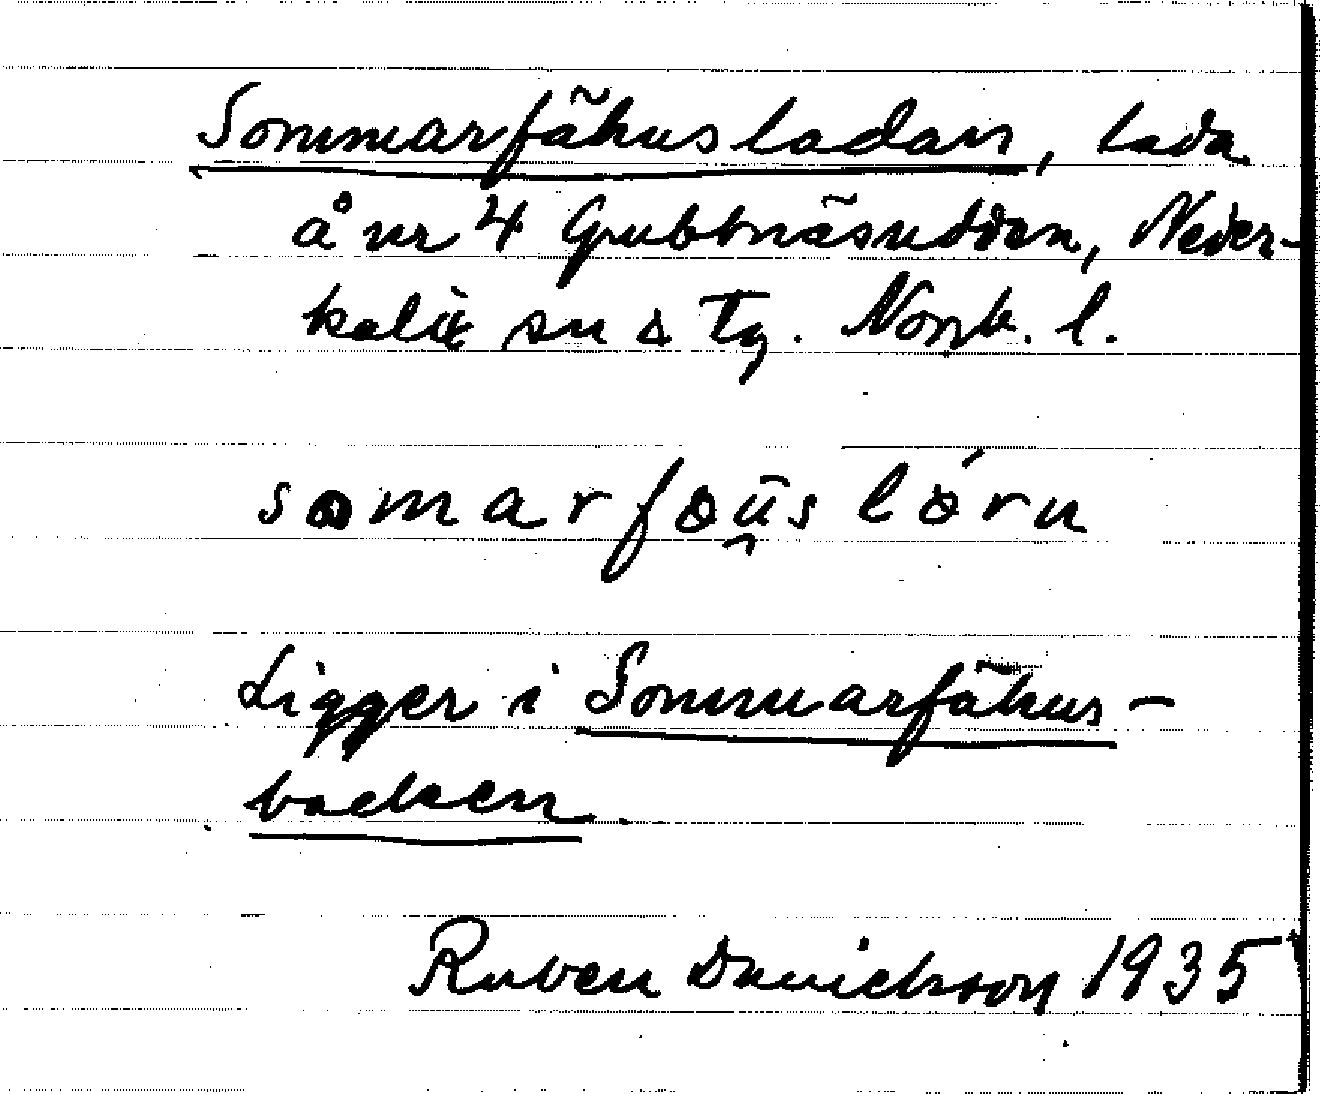 Sommarfähusladan, lada
å nr 4 Gubbnäsudden, Neder-
kalix sn o Tg. Norrb. l.
somarföūs lórn
Ligger i Sommarfähus-
backen.
Ruben Danielsson 1935